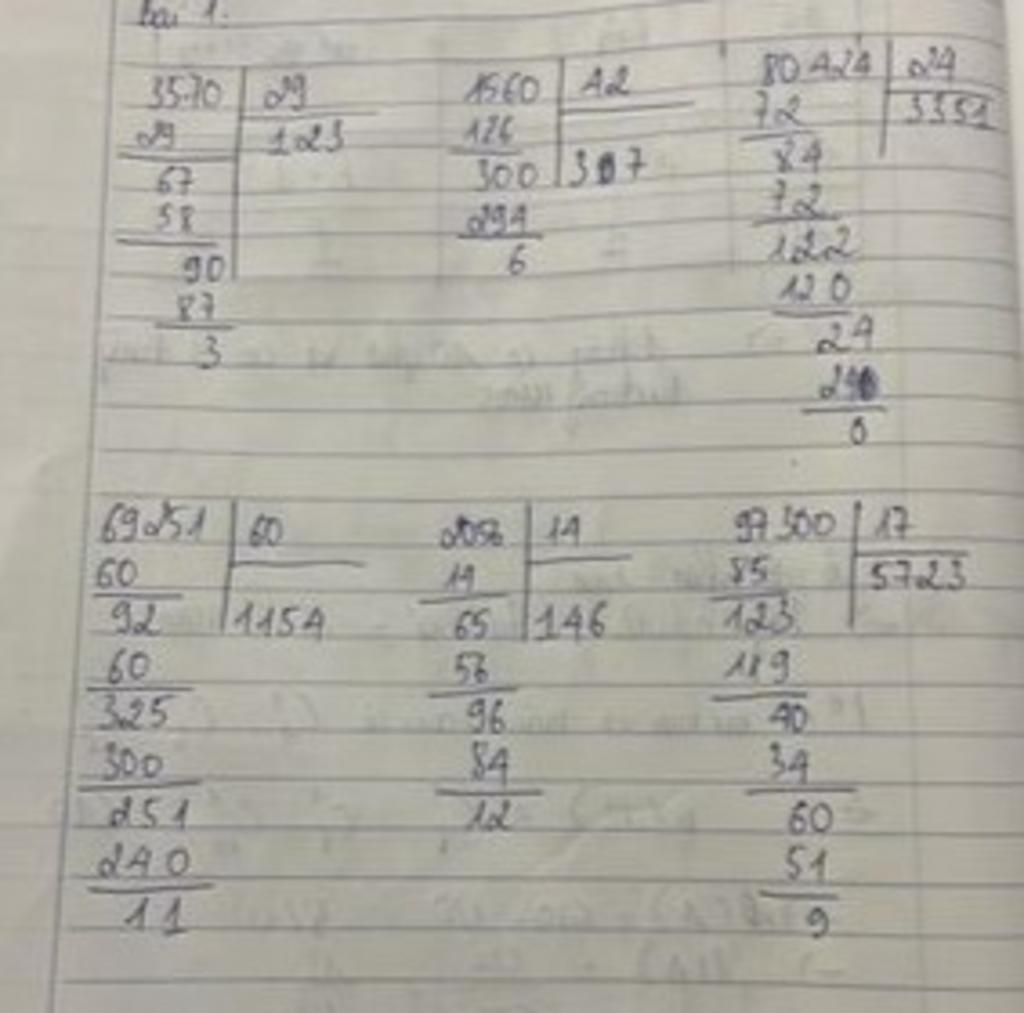 Bài 1.
3570 29
29 123
67
58
90
87
3
1560 42
126
300 307
294
6
80424 24
72 3351
84
72
122
120
24
24
0
69251 60
60
92 1154
60
325
300
251
240
11
2056 14
14
65 146
56
96
84
12
97300 17
85 5723
123
119
40
34
60
51
9